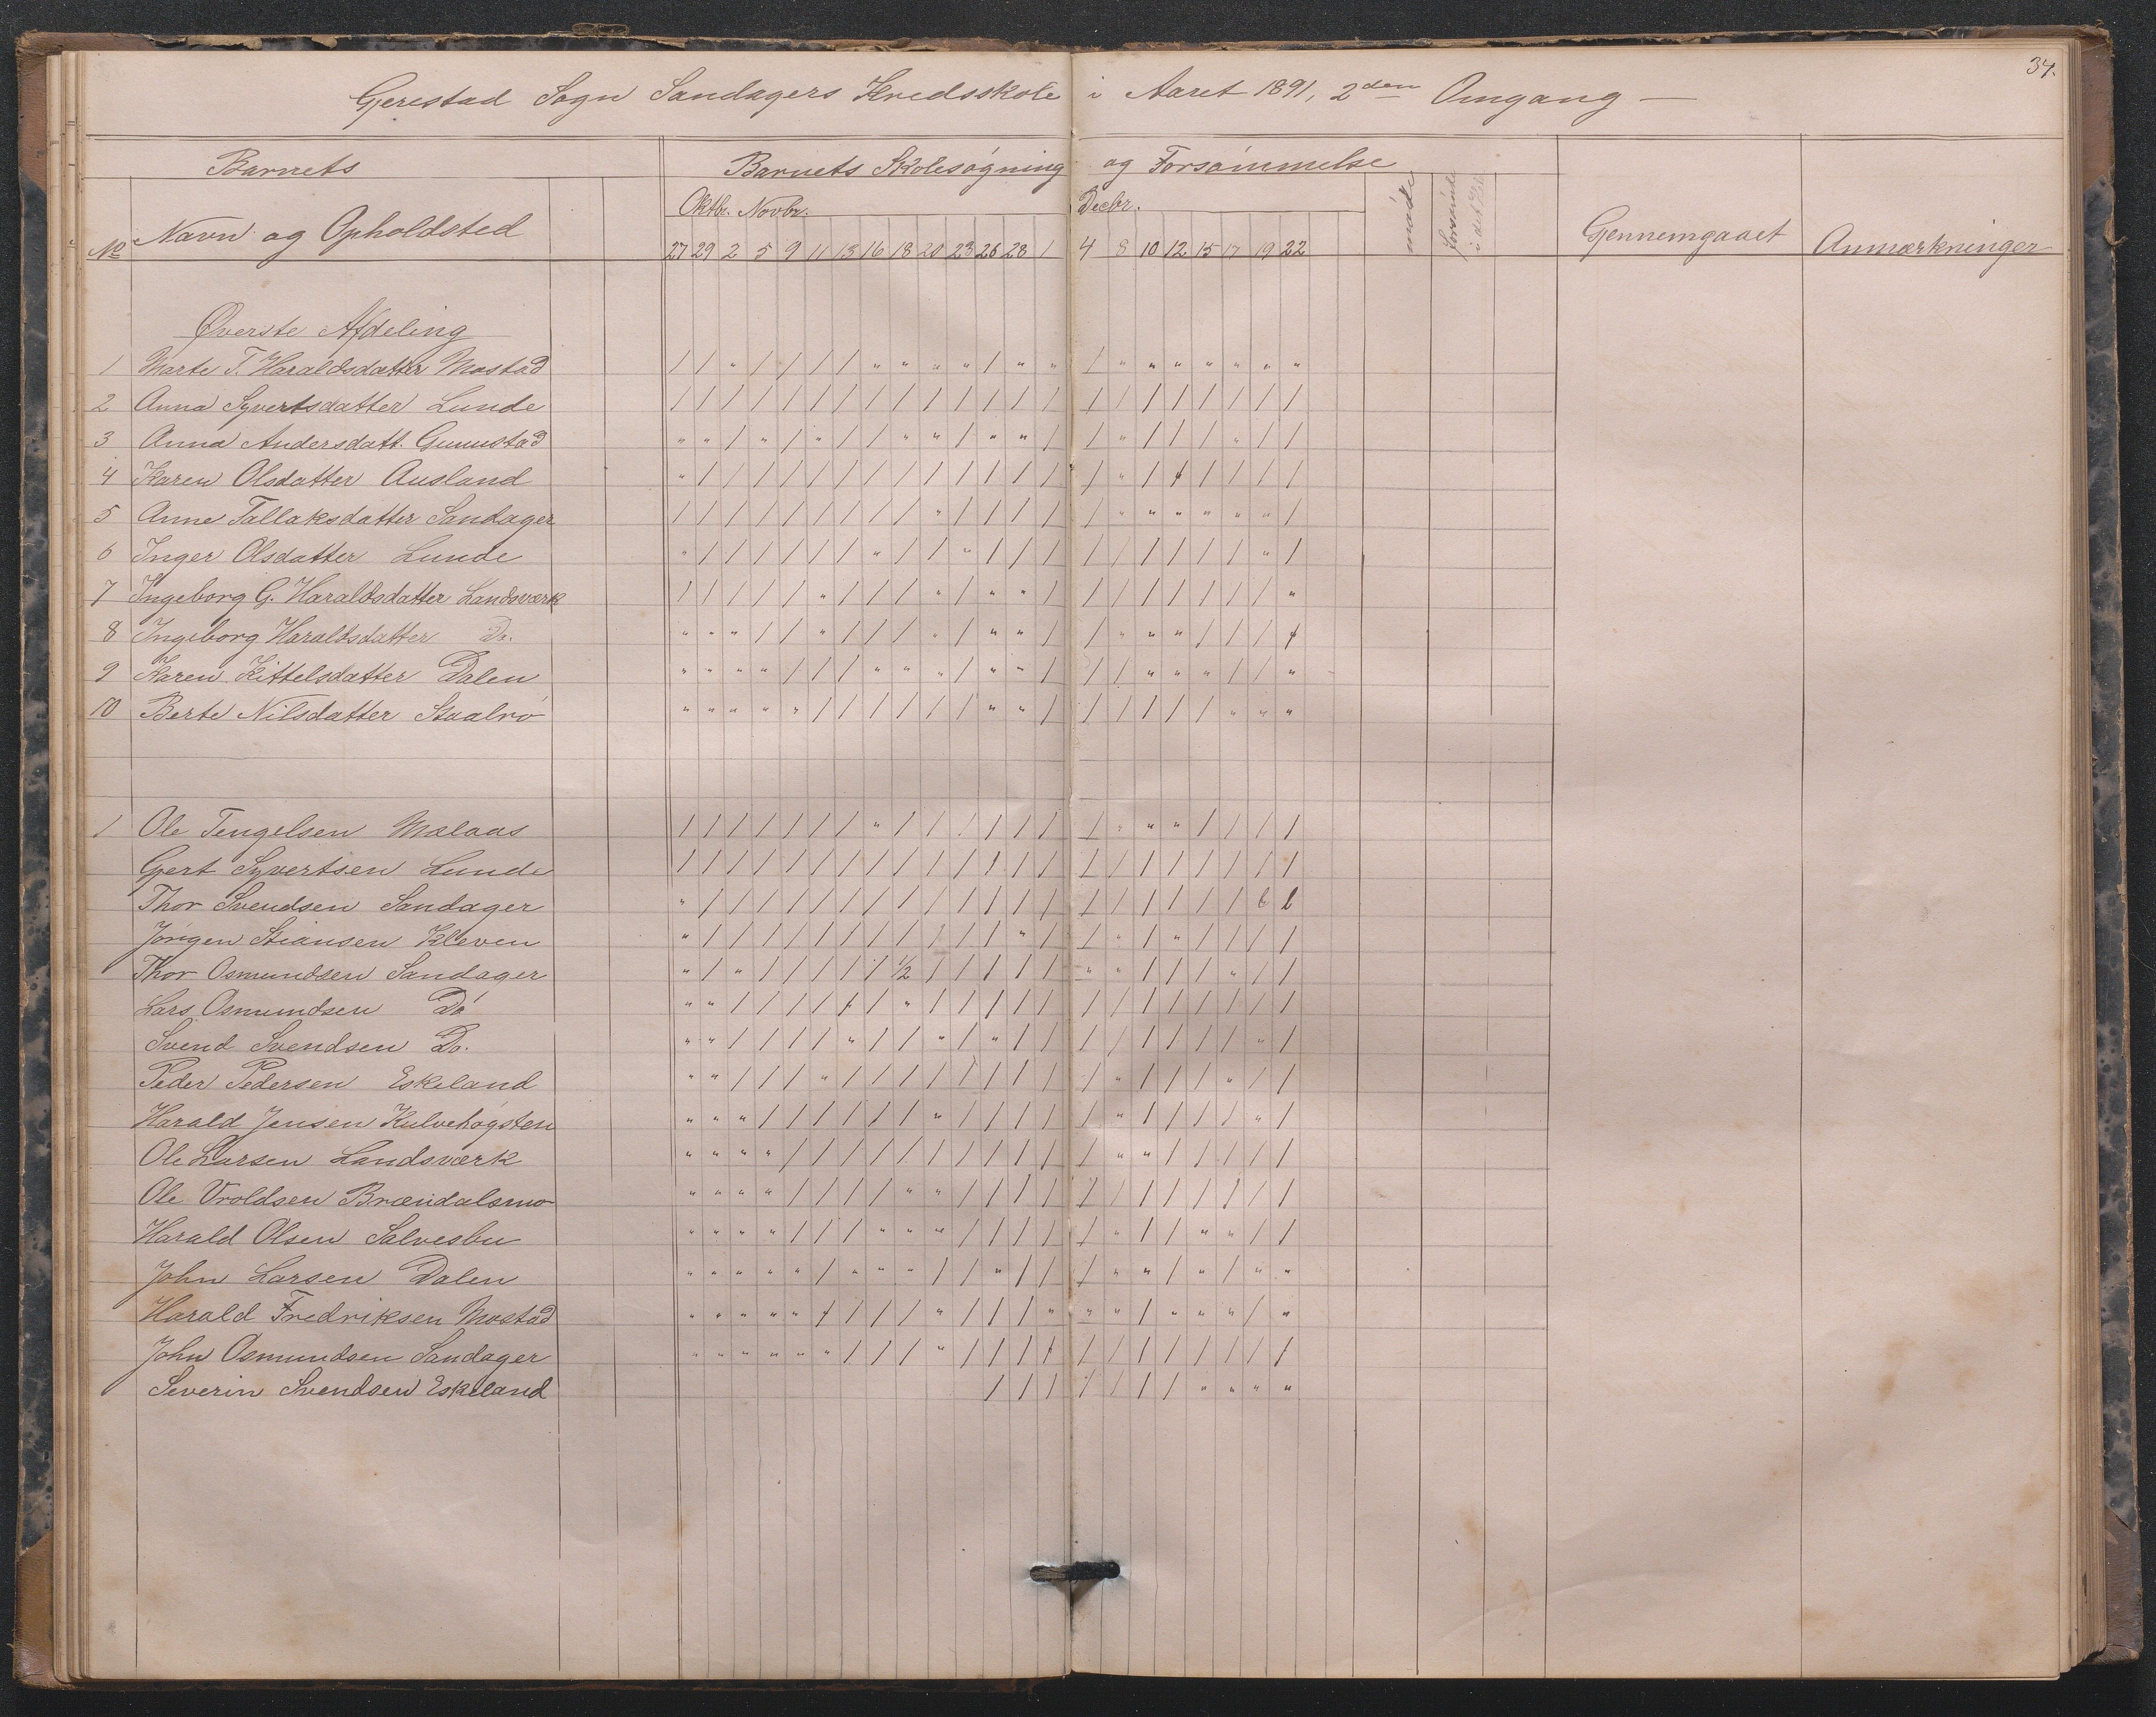 37.
Gjerestad Sogn Sandagers Kredsskole i Aaret 1891, 2den Omgang —
Barnets
Barnets Skolesøgning og Forsømmelse
No
Navn og Opholdsted
Oktbr. Novbr.
Decbr.
møde
forsømde
i det
Gjennemgaaet
Anmærkninger
27 29 2 5 9 11 13 16 18 20 23 26 28 1 4 8 10 12 15 17 19 22
Øverste Afdeling
1 Marte T. Haraldsdatter Mostad / / " / / / / " " " " / " " / " " " " " " "
2 Anna Syvertsdatter Lunde / / / / / / / / / / / / / / / / / / / / / /
3 Anna Andersdatt. Gunnstad " " / " / " / / " " / " " / / " / / / " / /
4 Karen Olsdatter Ausland " / / / / / / / / / / / / / / " / / / / / /
5 Anne Tallaksdatter Sandager / / / / / / / / / " / / / / / " " " " " " /
6 Inger Olsdatter Lunde " / / / / / / " / / " / / / / / / / / / " /
7 Ingeborg G. Haraldsdatter Landsværk / / / / / " / / / " / " " / / / / / / / / "
8 Ingeborg Haraldsdatter Do. " " " / / " / / / " / " " / / " " " / / / /
9 Karen Kittelsdatter Dalen " " " " / / / " " " / " " / / / " " " / / "
10 Berte Nilsdatter Staalrø " " " " " / / / / / / " " / / / / / / " " "
1 Ole Tengelsen Mælaas / / / / / / / " / / / / / / / " " " / / / /
Gjert Syvertsen Lunde / / / / / / / / / / / / / / / / / / / / / /
Thor Svendsen Sandager " / / / / / / / / / / / / / / / / / / / b b
Jørgen Stiansen Kleven " / / / / / / / / / / / " / / " / " / / / /
Thor Osmundsen Sandager " / " / / / / / 1/2 / / / / / " " / / / " / /
Lars Osmundsen Do " " / / / / / / " / / / / / / / / / / / / /
Svend Svendsen Do. " " / / / / " / / " / " / / / / / / / / " /
Peder Pedersen Eskeland " " / / / " / / / / / / / / / " / / / " / /
Harald Jensen Kulvehøgsten " " " / / / / / / " / / / / / " / / / / " /
Ole Larsen Landsværk " " " " / / / / / / / / / / / " " / / / / /
Ole Vroldsen Brændalsmo " " " " / / / / " " / / / / / / / / / / / /
Harald Olsen Salvesbu " " " " / / / " " " / / / / / " / / " " / /
John Larsen Dalen " " " " " / " " " / / " / / / " " / " / " "
Harald Fredriksen Mostad " " " " " / / / / " / / / " " " / " " " / "
John Osmundsen Sandager " " " " " " / / / " / / / / / / / / / / / /
Severin Svendsen Eskeland / / / / / / / " " " "